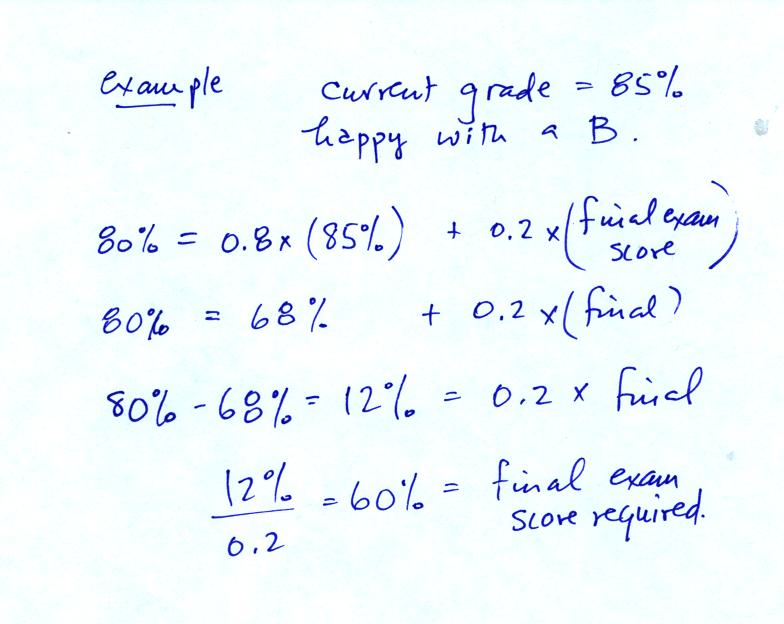 example current grade = 85%
happy with a B.
80% = 0.8 x (85%) + 0.2 x (final exam score)
80% = 68% + 0.2 x (final)
80% - 68% = 12% = 0.2 x final
12% / 0.2 = 60% = final exam score required.